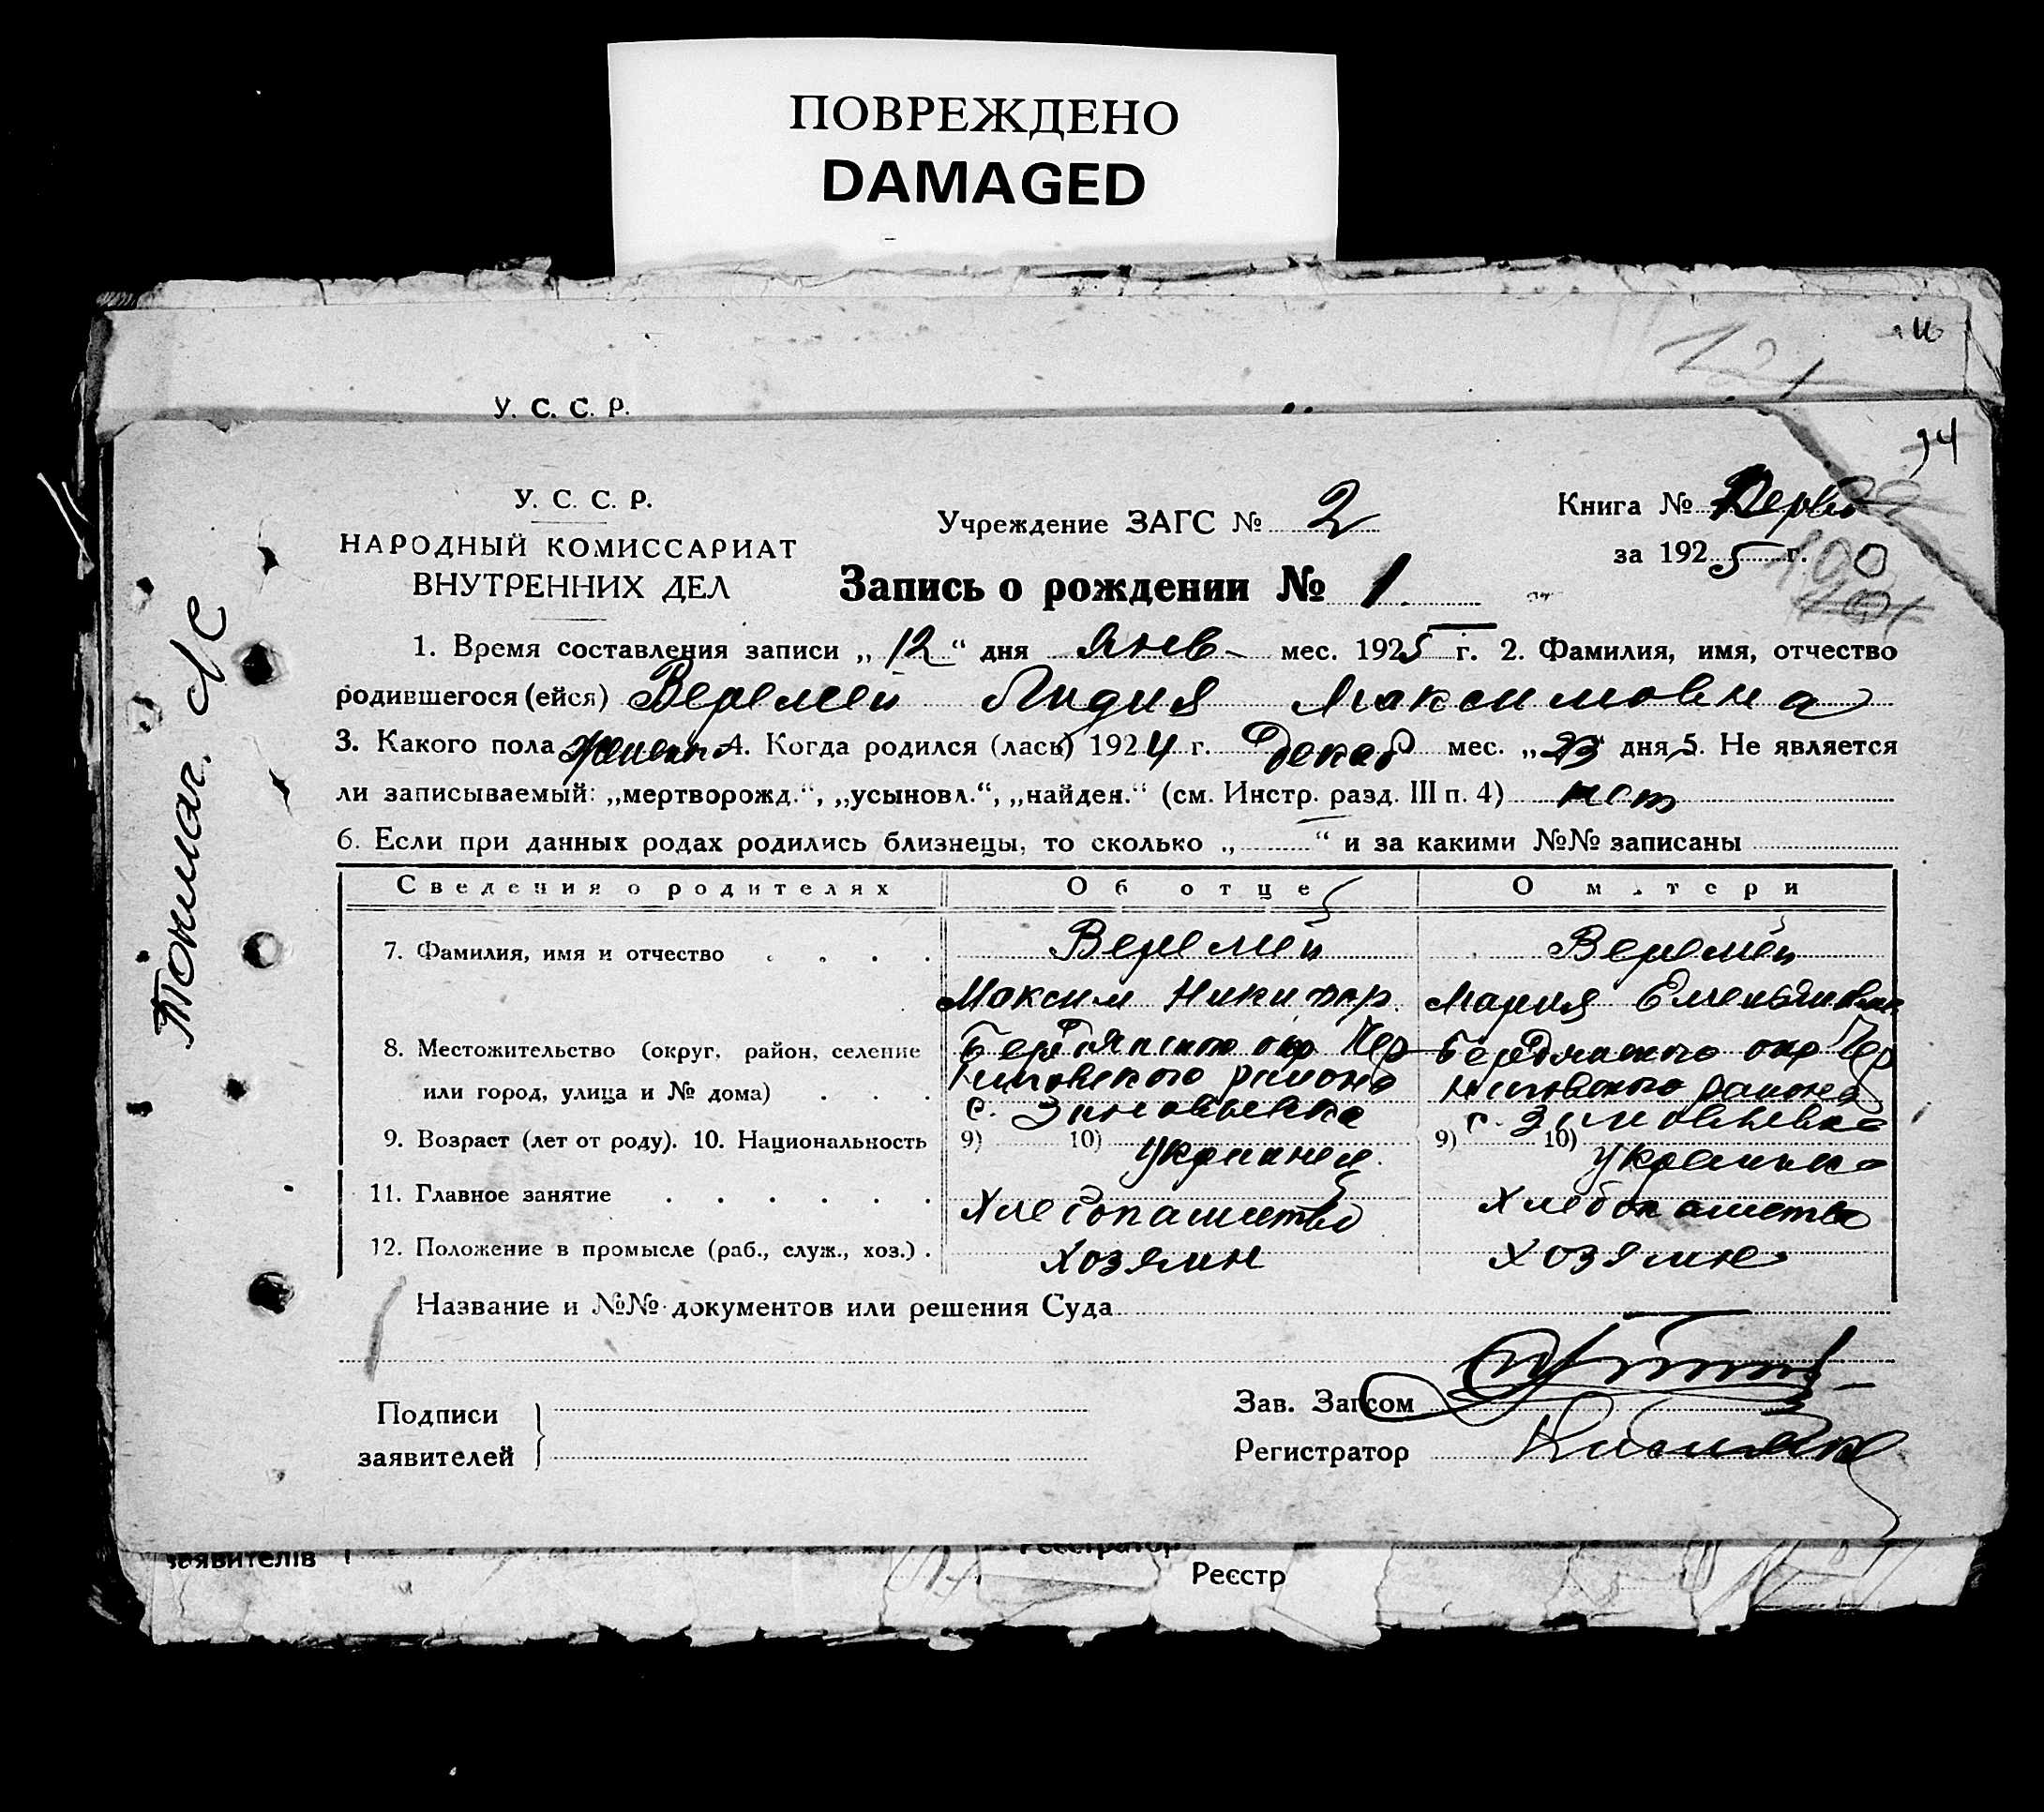 ПОВРЕЖДЕНО
DAMAGED
У. С. С. Р.
94
У. С. С. Р.
НАРОДНЫЙ КОМИССАРИАТ
ВНУТРЕННИХ ДЕЛ
Учреждение ЗАГС № 2
Книга №
за 1925 г.
Запись о рождении № 1.
1. Время составления записи „12“ дня Янв- мес. 1925 г. 2. Фамилия, имя, отчество
родившегося (ейся) Веремей Лидия Максимовна
3. Какого пола 4. Когда родился (лась) 1924 г. декаб мес. „23“ дня 5. Не является
ли записываемый: „мертворожд.“, „усыновл.“, „найден.“ (см. Инстр. разд. III п. 4) нет
6. Если при данных родах родились близнецы, то сколько „ “ и за какими №№ записаны
Сведения о родителях Об отце О матери
7. Фамилия, имя и отчество Веремей Веремей
Максим Никифор. Мария Емельяновна
8. Местожительство (округ, район, селение Бердянского окр Чер Бердянского окр Чер
или город, улица и № дома) района района
с. Зиновьевка с. Зиновьевка
9. Возраст (лет от роду). 10. Национальность 9) 10) украинец 9) 10) украинка
11. Главное занятие Хлебопашество Хлебопашество
12. Положение в промысле (раб., служ., хоз.) хозяин хозяйка
Название и №№ документов или решения Суда
Подписи
заявителей
Зав. Загсом
Регистратор
заявителів
Реєстратор
Реєстр